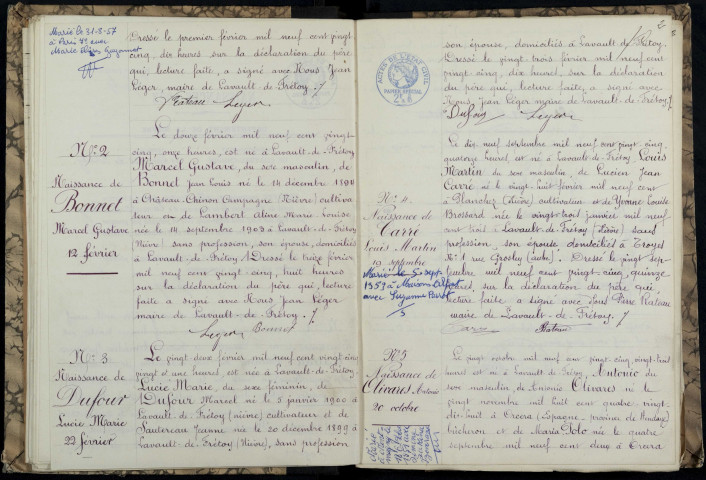 Marié le 31-8-57
à Paris 7e avec
Marie
Dressé le premier février mil neuf cent vingt
cinq, dix heures, sur la déclaration du père
qui, lecture faite, a signé avec Nous Jean
Léger, maire de Lavault-de-Frétoy ./
Rateau Leger
No 2
Naissance de
Bonnet
Marcel Gustave
12 février
Le douze février mil neuf cent vingt-
cinq, onze heures, est né à Lavault-de-Frétoy
Marcel Gustave, du sexe masculin, de
Bonnet Jean Louis né le 14 décembre 1894
à Château-Chinon Campagne (Nièvre) cultiva-
teur et de Lambert Aline Marie Louise
née le 14 septembre 1903 à Lavault-de-Frétoy
(Nièvre) sans profession, son épouse, domiciliés
à Lavault-de-Frétoy. Dressé le treize février
mil neuf cent vingt-cinq, huit heures
sur la déclaration du père qui, lecture
faite a signé avec Nous Jean Léger
maire de Lavault-de-Frétoy ./
Leger Bonnet
No 3
Naissance de
Dufour
Lucie Marie
22 février
Le vingt-deux février mil neuf cent vingt-cinq
vingt et une heures, est née à Lavault-de-Frétoy
Lucie Marie, du sexe féminin, de
Dufour Marcel né le 5 janvier 1900 à
Lavault-de-Frétoy (Nièvre) cultivateur et de
Sautereau Jeanne née le 20 décembre 1899 à
Lavault-de-Frétoy (Nièvre), sans profession
2
son épouse, domiciliés à Lavault-de-Frétoy.
Dressé le vingt trois février mil neuf cent
vingt cinq, dix heures, sur la déclaration
du père qui, lecture faite, a signé avec
Nous Jean Léger maire de Lavault-de-Frétoy ./
Dufour Leger
ACTES DE L'ETAT CIVIL
PAPIER SPECIAL
No 4
Naissance de
Carré
Louis Martin
19 septembre
Marié le 5 sept
1959 à Maisons Alfort
avec Suzanne
Le dix neuf septembre mil neuf cent vingt cinq,
quatorze heures est né à Lavault-de-Frétoy Louis
Martin du sexe masculin, de Lucien Jean
Carré né le vingt huit février mil neuf cent
à Planchez (Nièvre) cultivateur et de Yvonne Louise
Brossard née le vingt-trois janvier mil neuf
cent trois à Lavault-de-Frétoy (Nièvre) sans
profession son épouse domiciliés à Troyes
No 1 rue Grosley (Aube). Dressé le vingt sep-
tembre mil neuf cent vingt cinq, quinze
heures, sur la déclaration du père qui
lecture faite a signé avec Nous Pierre Rateau
maire de Lavault-de-Frétoy ./
Carré Rateau
No 5
Naissance de
Olivares Antonio
20 octobre
Le vingt octobre mil neuf cent vingt-cinq, vingt-huit
heures est né à Lavault-de-Frétoy Antonio du
sexe masculin de Antonio Olivares né le
vingt novembre mil huit cent quatre vingt-
dix-huit à Orcera (Espagne province de
bûcheron et de Maria Soto née le quatre
septembre mil neuf cent deux à Orcera